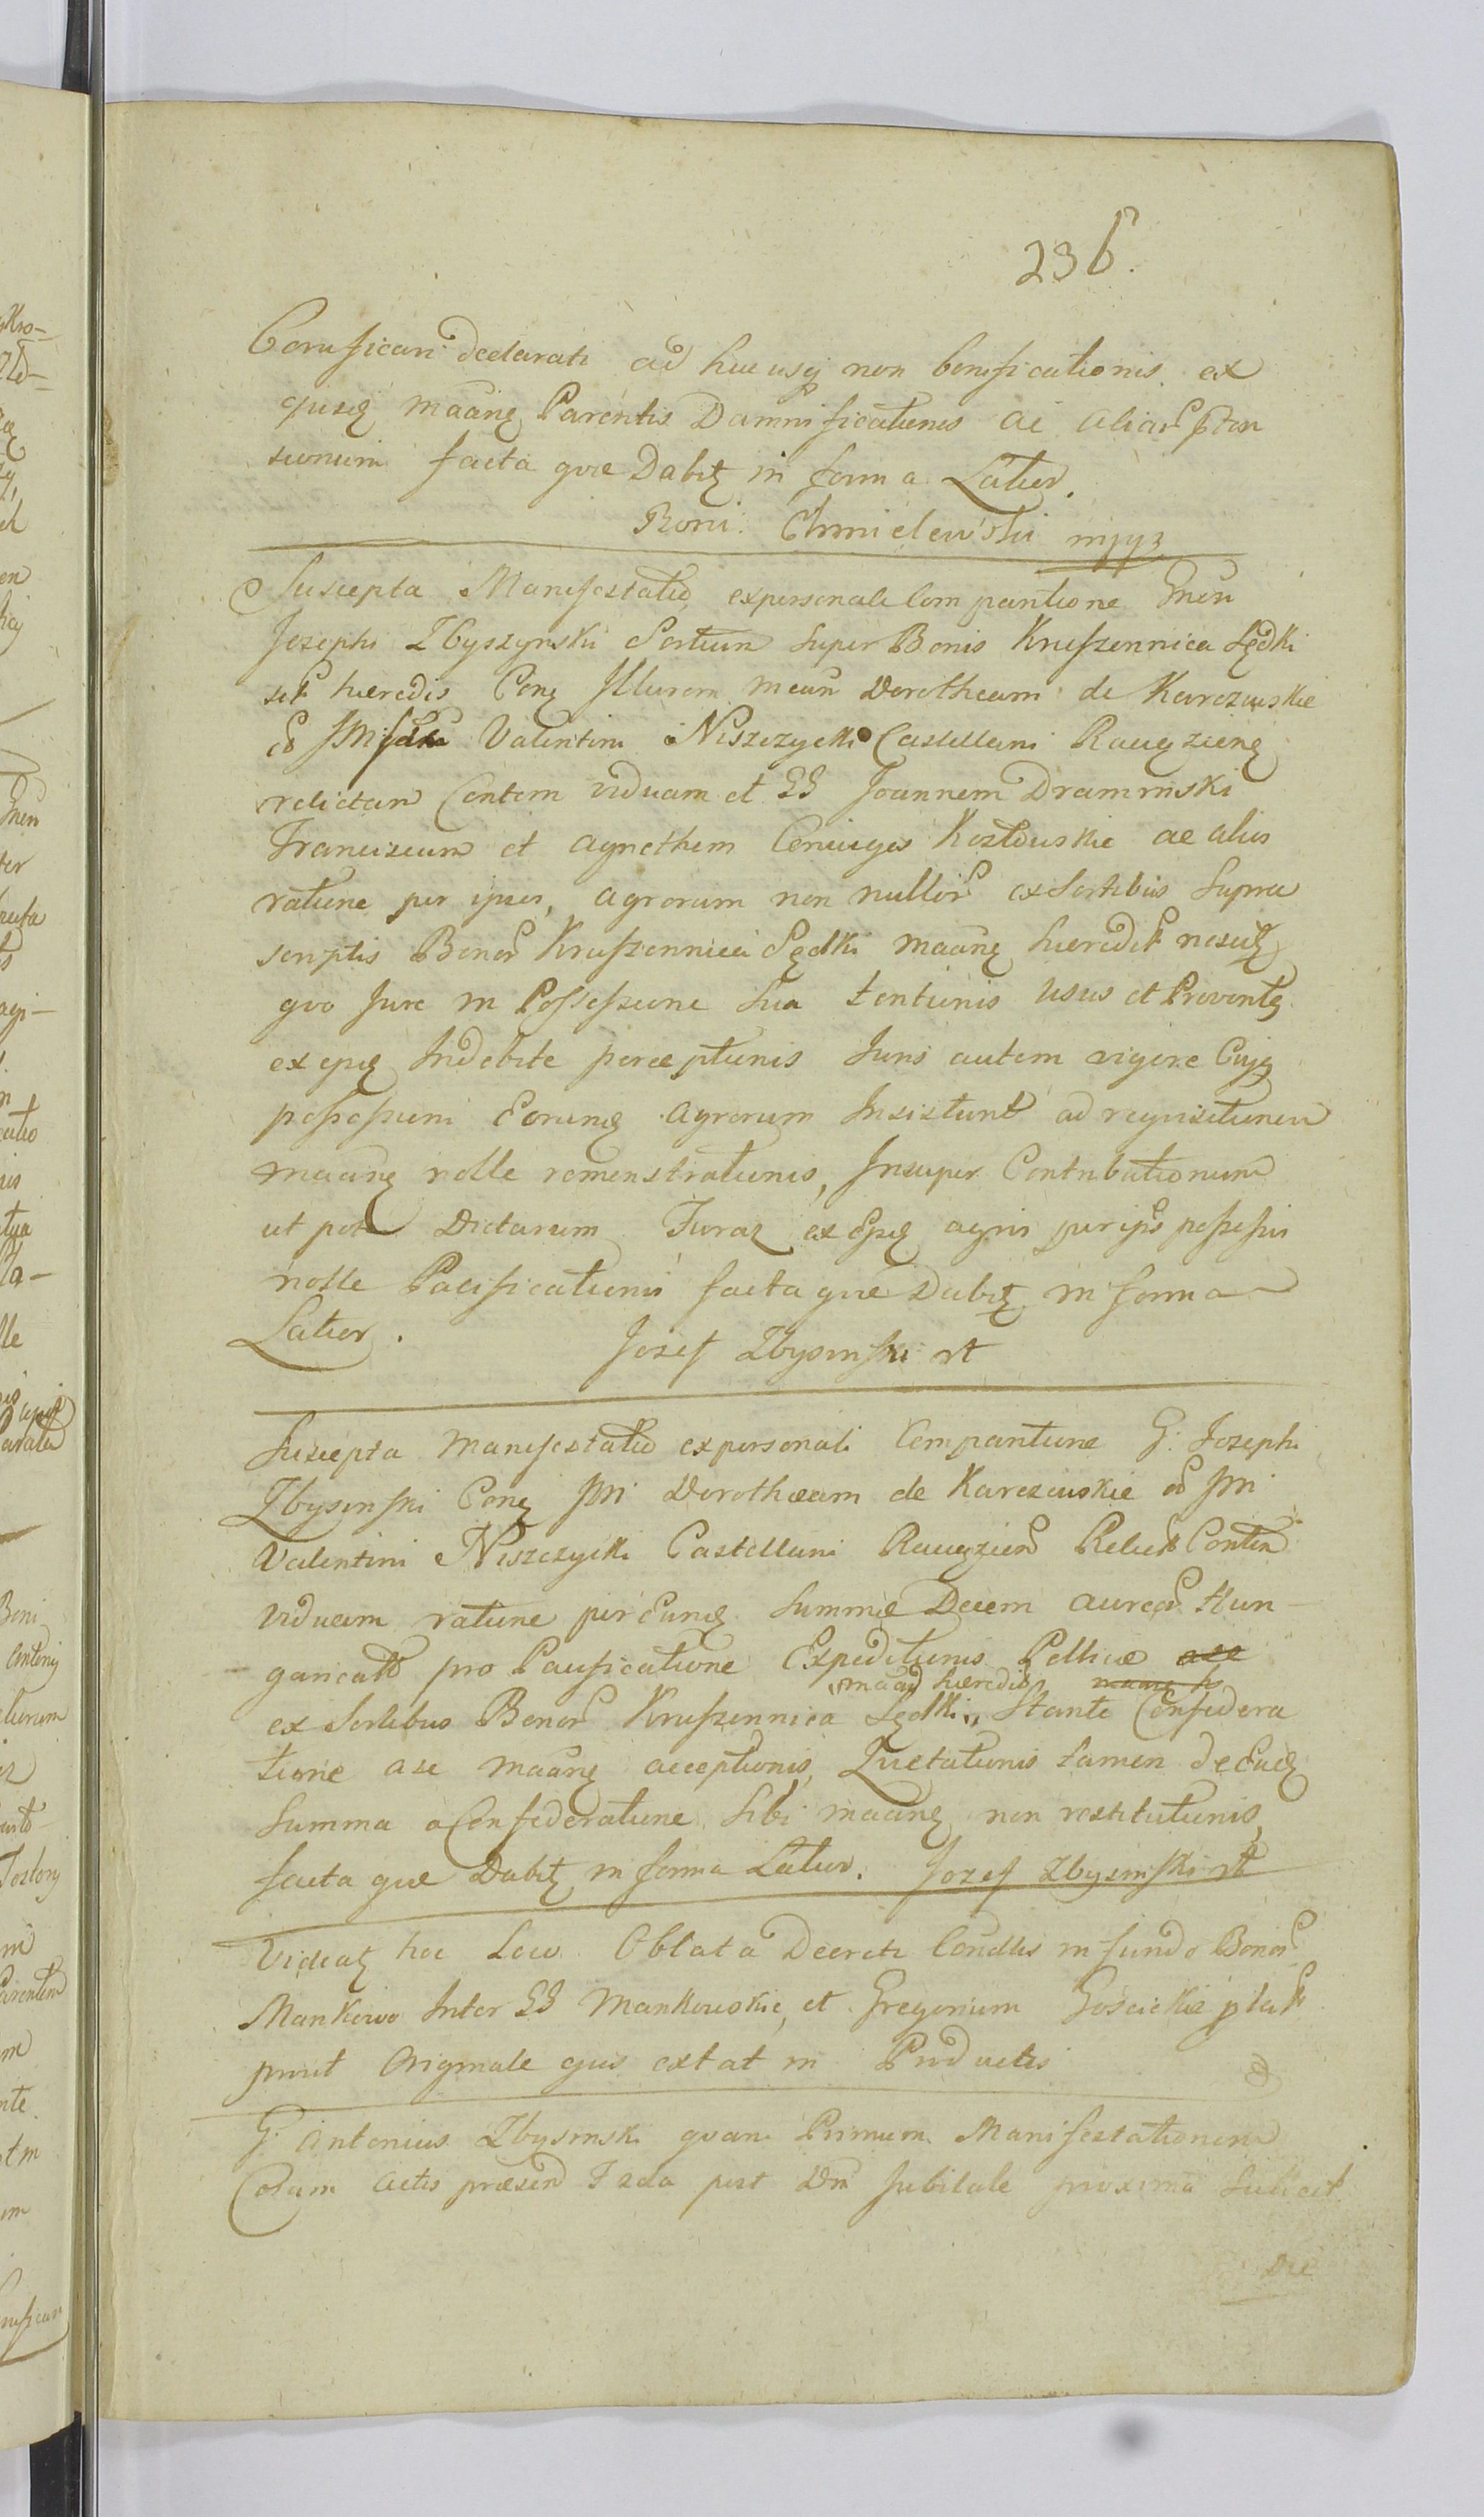 236.
Bonificari declarati ad huc usq non bonificationis ex
qusq maanę Parentis Damnificationis ac aliar pten
sionum facta que Dabit in forma Latior.
Boni: Chmielewski mppz
Suscepta Manifestatio ex personali Comparitione Gnen
Josephi Zbyszynski Sortium super Bonis Kruszennica Sędki
set hæredis Conę Illurem mcam Dorotheam de Karczewskie
od Valentini Niszczycki Castellani Raciązienę
relictam Contem viduam et GG Joannem Draminski
Franciscum et Agnethem Coniuges Kozłowskie ac alios
ratione per ipsos, agrorum non nullor ex Sortibus supra
scriptis Bonor Kruszennica Sędki maanę hæredit nescit
quo jure in Possessione sua tentionis usus et Provents
ex epis Indebite perceptionis Juris autem vigore Cujq
possessioni Eorumq Agrorum Insistunt ad requisitionem
maanę nolle remonstrationis, Insuper Contributionum
ut pote Dictarum Furaz ex Epis agris per ipsos possessis
nolle Pacificationis facta que Dabit in forma
Latior.
Jozef Zbysinski rt
Suscepta Manifestatio ex personali Comparitione G: Josephi
Zbysinski Conę Dorotheam de Karczewskie od
Valentini Niszczycki Castellani Raciązien Relict Conten
viduam ratione per Eumq Summæ Decem aureor Hun-
garicalo pro Pacificatione Expeditionis Bellicæ ase
maan hæredis maane hs
ex Sortibus Bonor Kruszennica Sędki,, Stante Confedera
tione a se maanę acceptionis, Quietationis tamen de Eadę
Summa a Confederatione sibi maanę non restitutionis,
facta que Dabit in forma Latior. Jozef Zbysinski rt
Videat hoc Loco Oblata Decreti Condlis in fundo Bonor
Mankowo Inter GG Mankowskie, et Gregorium Goscickie plat
prout Originale quo extat in Productis
G: Antonius Zbysinski quam Primum Manifestationem
Coram Actis præsen post Dn Jubilate proxima
Die